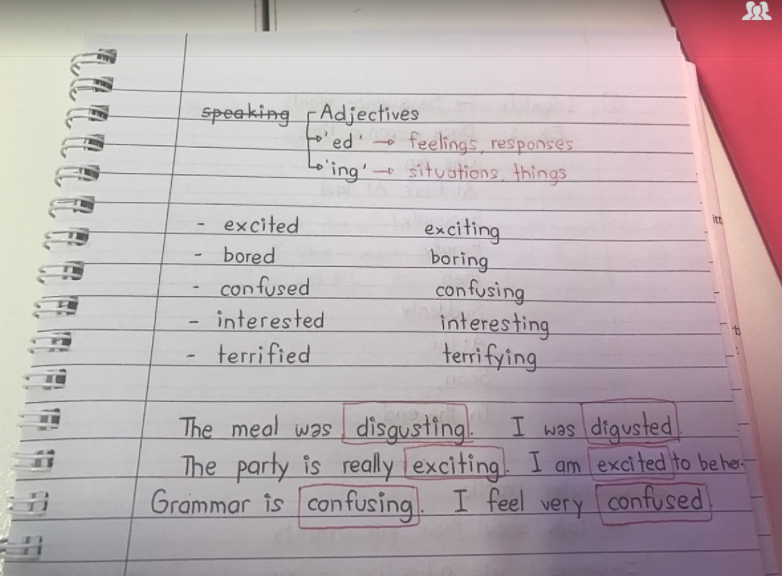 speaking Adjectives
'ed' → feelings, responses
'ing' → situations, things
- excited exciting
- bored boring
- confused confusing
- interested interesting
- terrified terrifying
The meal was disgusting. I was digusted.
The party is really exciting. I am excited to be her
Grammar is confusing. I feel very confused